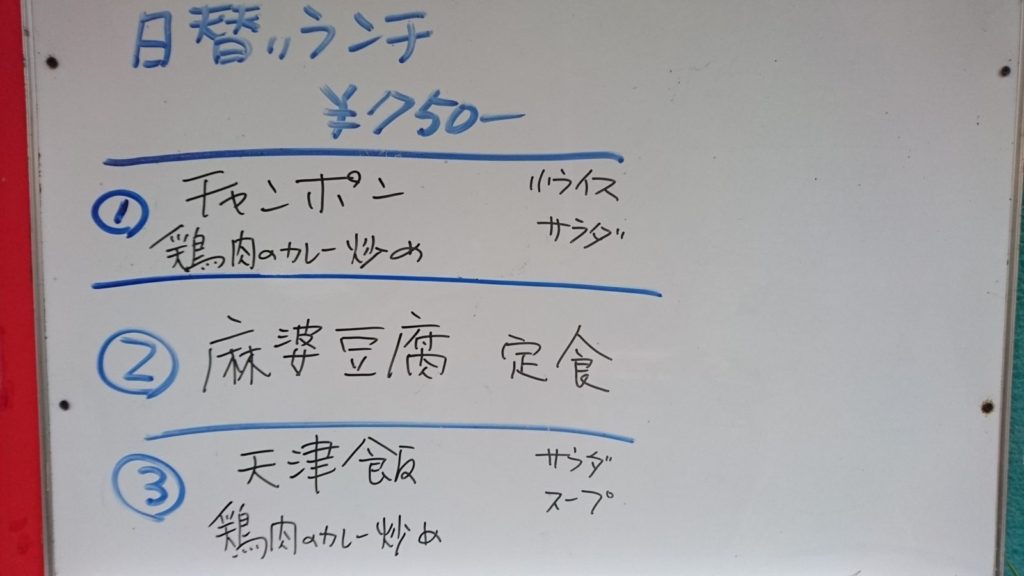 日替りランチ
¥750ー
① チャンポン 小ライス
鶏肉のカレー炒め サラダ
② 麻婆豆腐 定食
③ 天津飯 サラダ
スープ
鶏肉のカレー炒め